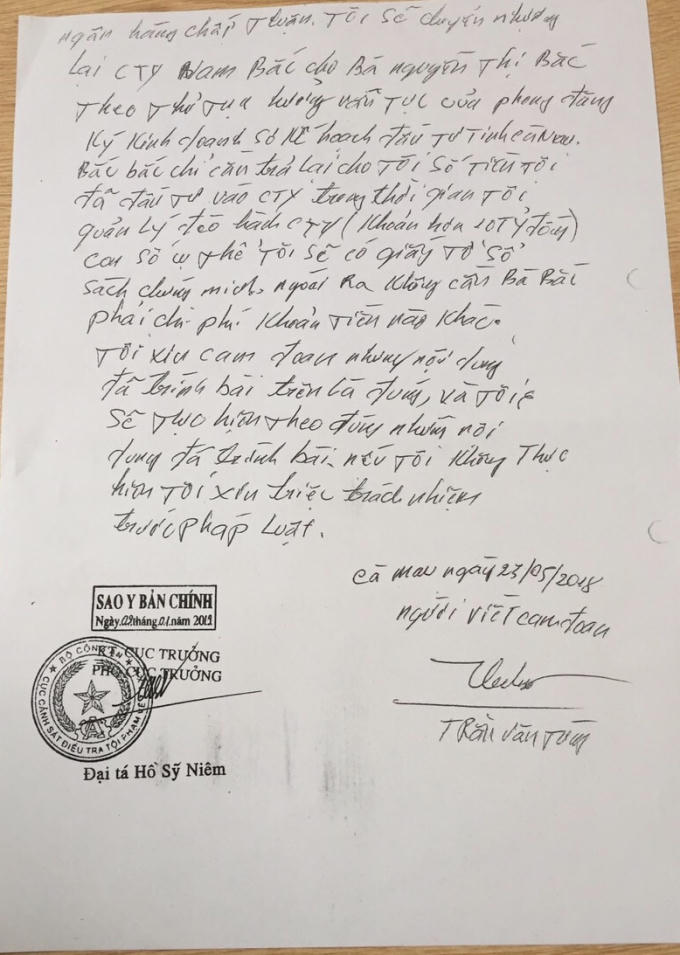 ngân hàng chấp Thuận. Tôi sẽ chuyển nhượng
lại CTY Nam Bắc cho Bà nguyễn Thị Bắc
Theo Thủ Tục hướng vẫn Tục của phong đăng
Ký Kinh doanh Sở Kế hoạch đầu Tư Tỉnh cà Nau.
Bắc bắc chỉ cần trả lại cho Tôi Số Tiền Tôi
đã đầu Tư vào CTY trong thời gian Tôi
quản Lý đèo hành CTY (Khoản hơn 10 Tỷ đồng)
con số cụ Thể Tôi Sẽ có giấy Tờ Sổ
Sách chứng minh. ngoài Ra Không cần Bà Bắc
phải chi phí Khoản Tiền nào Khác.
Tôi xin cam đoan những nội dung
đã trình bài trên là đúng, và Tôi
Sẽ Tực hiện Theo đúng những nội
dung đã trình bài. nếu Tôi Không Thực
hiện Tôi xin triệc trách nhiệm
trước pháp Luật.
Cà mau ngày 23/05/2018
người viết cam đoan
Trần Văn Tùng
SAO Y BẢN CHÍNH
Ngày 09 tháng 01 năm 2019
KT. CỤC TRƯỞNG
PHÓ CỤC TRƯỞNG
BỘ CÔNG AN
CỤC CẢNH SÁT ĐIỀU TRA TỘI PHẠM
Đại tá Hồ Sỹ Niêm